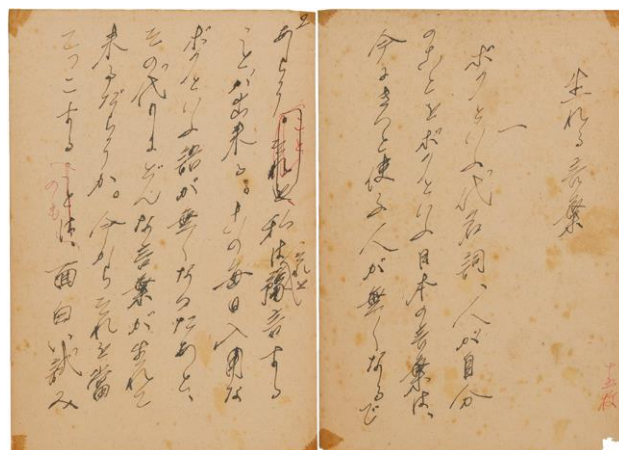 生れる言葉
一
ボクといふ代名詞、人が自分
のことをボクといふ日本の言葉は、
今にきつと使ふ人が無くなるで
十五枚
2
あらう。それを私は豫言する
ことが出来る。この毎日入用な
ボクといふ語が無くなつたあと、
その代りにどんな言葉が生れて
来るだらうか。今からそれを當
てつこする
のも
とは、面白い試み